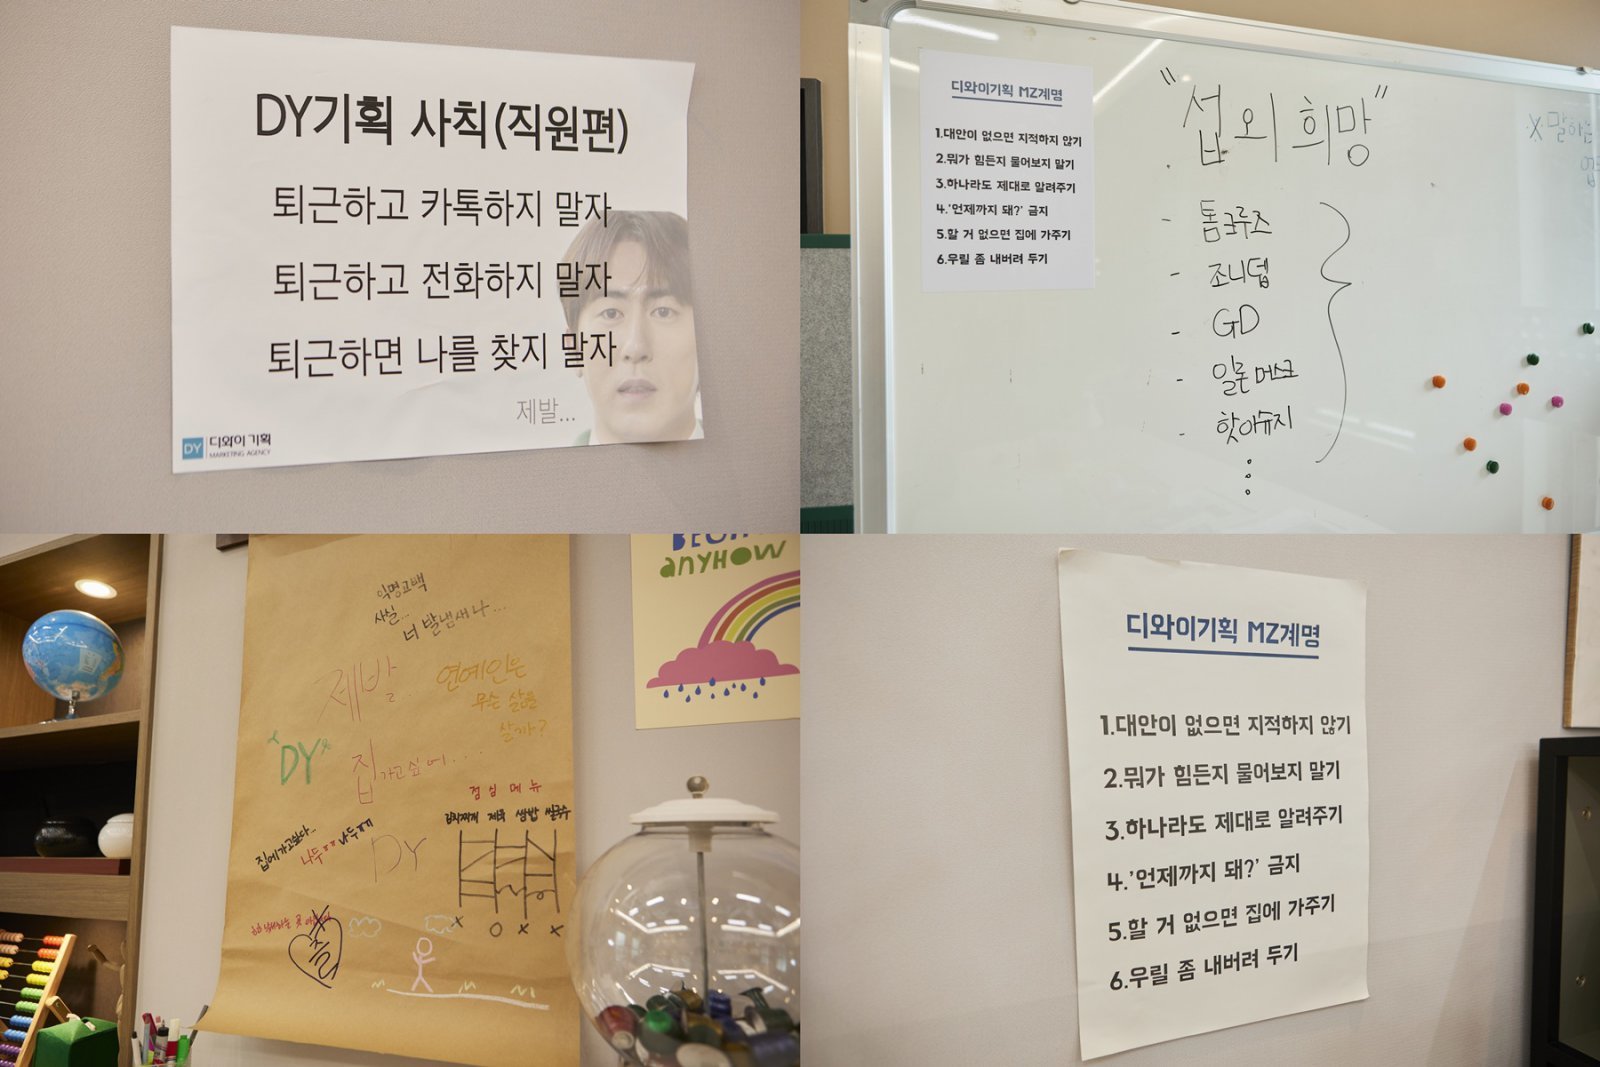 DY기획 사칙(직원편)
퇴근하고 카톡하지 말자
퇴근하고 전화하지 말자
퇴근하면 나를 찾지 말자
제발...
DY 디와이기획
MARKETING AGENCY
디와이기획 MZ계명
1.대안이 없으면 지적하지 않기
2.뭐가 힘든지 물어보지 말기
3.하나라도 제대로 알려주기
4.'언제까지 돼?' 금지
5.할 거 없으면 집에 가주기
6.우릴 좀 내버려 두기
"섭외 희망"
- 톰크루즈
- 조니뎁
- GD
- 일론머스크
- 핫이슈지
※말하는
익명고백
사실...
너 발냄새나...
제발..
연예인은
무슨 삶을
살까?
DY
집가고싶어...
점심 메뉴
김치찌개 제육 쌈밥 쌀국수
집에가고싶다...
나두ㅠㅠ 나두ㅠㅠ
DY
X O X X
ANYHOW
디와이기획 MZ계명
1.대안이 없으면 지적하지 않기
2.뭐가 힘든지 물어보지 말기
3.하나라도 제대로 알려주기
4.'언제까지 돼?' 금지
5.할 거 없으면 집에 가주기
6.우릴 좀 내버려 두기